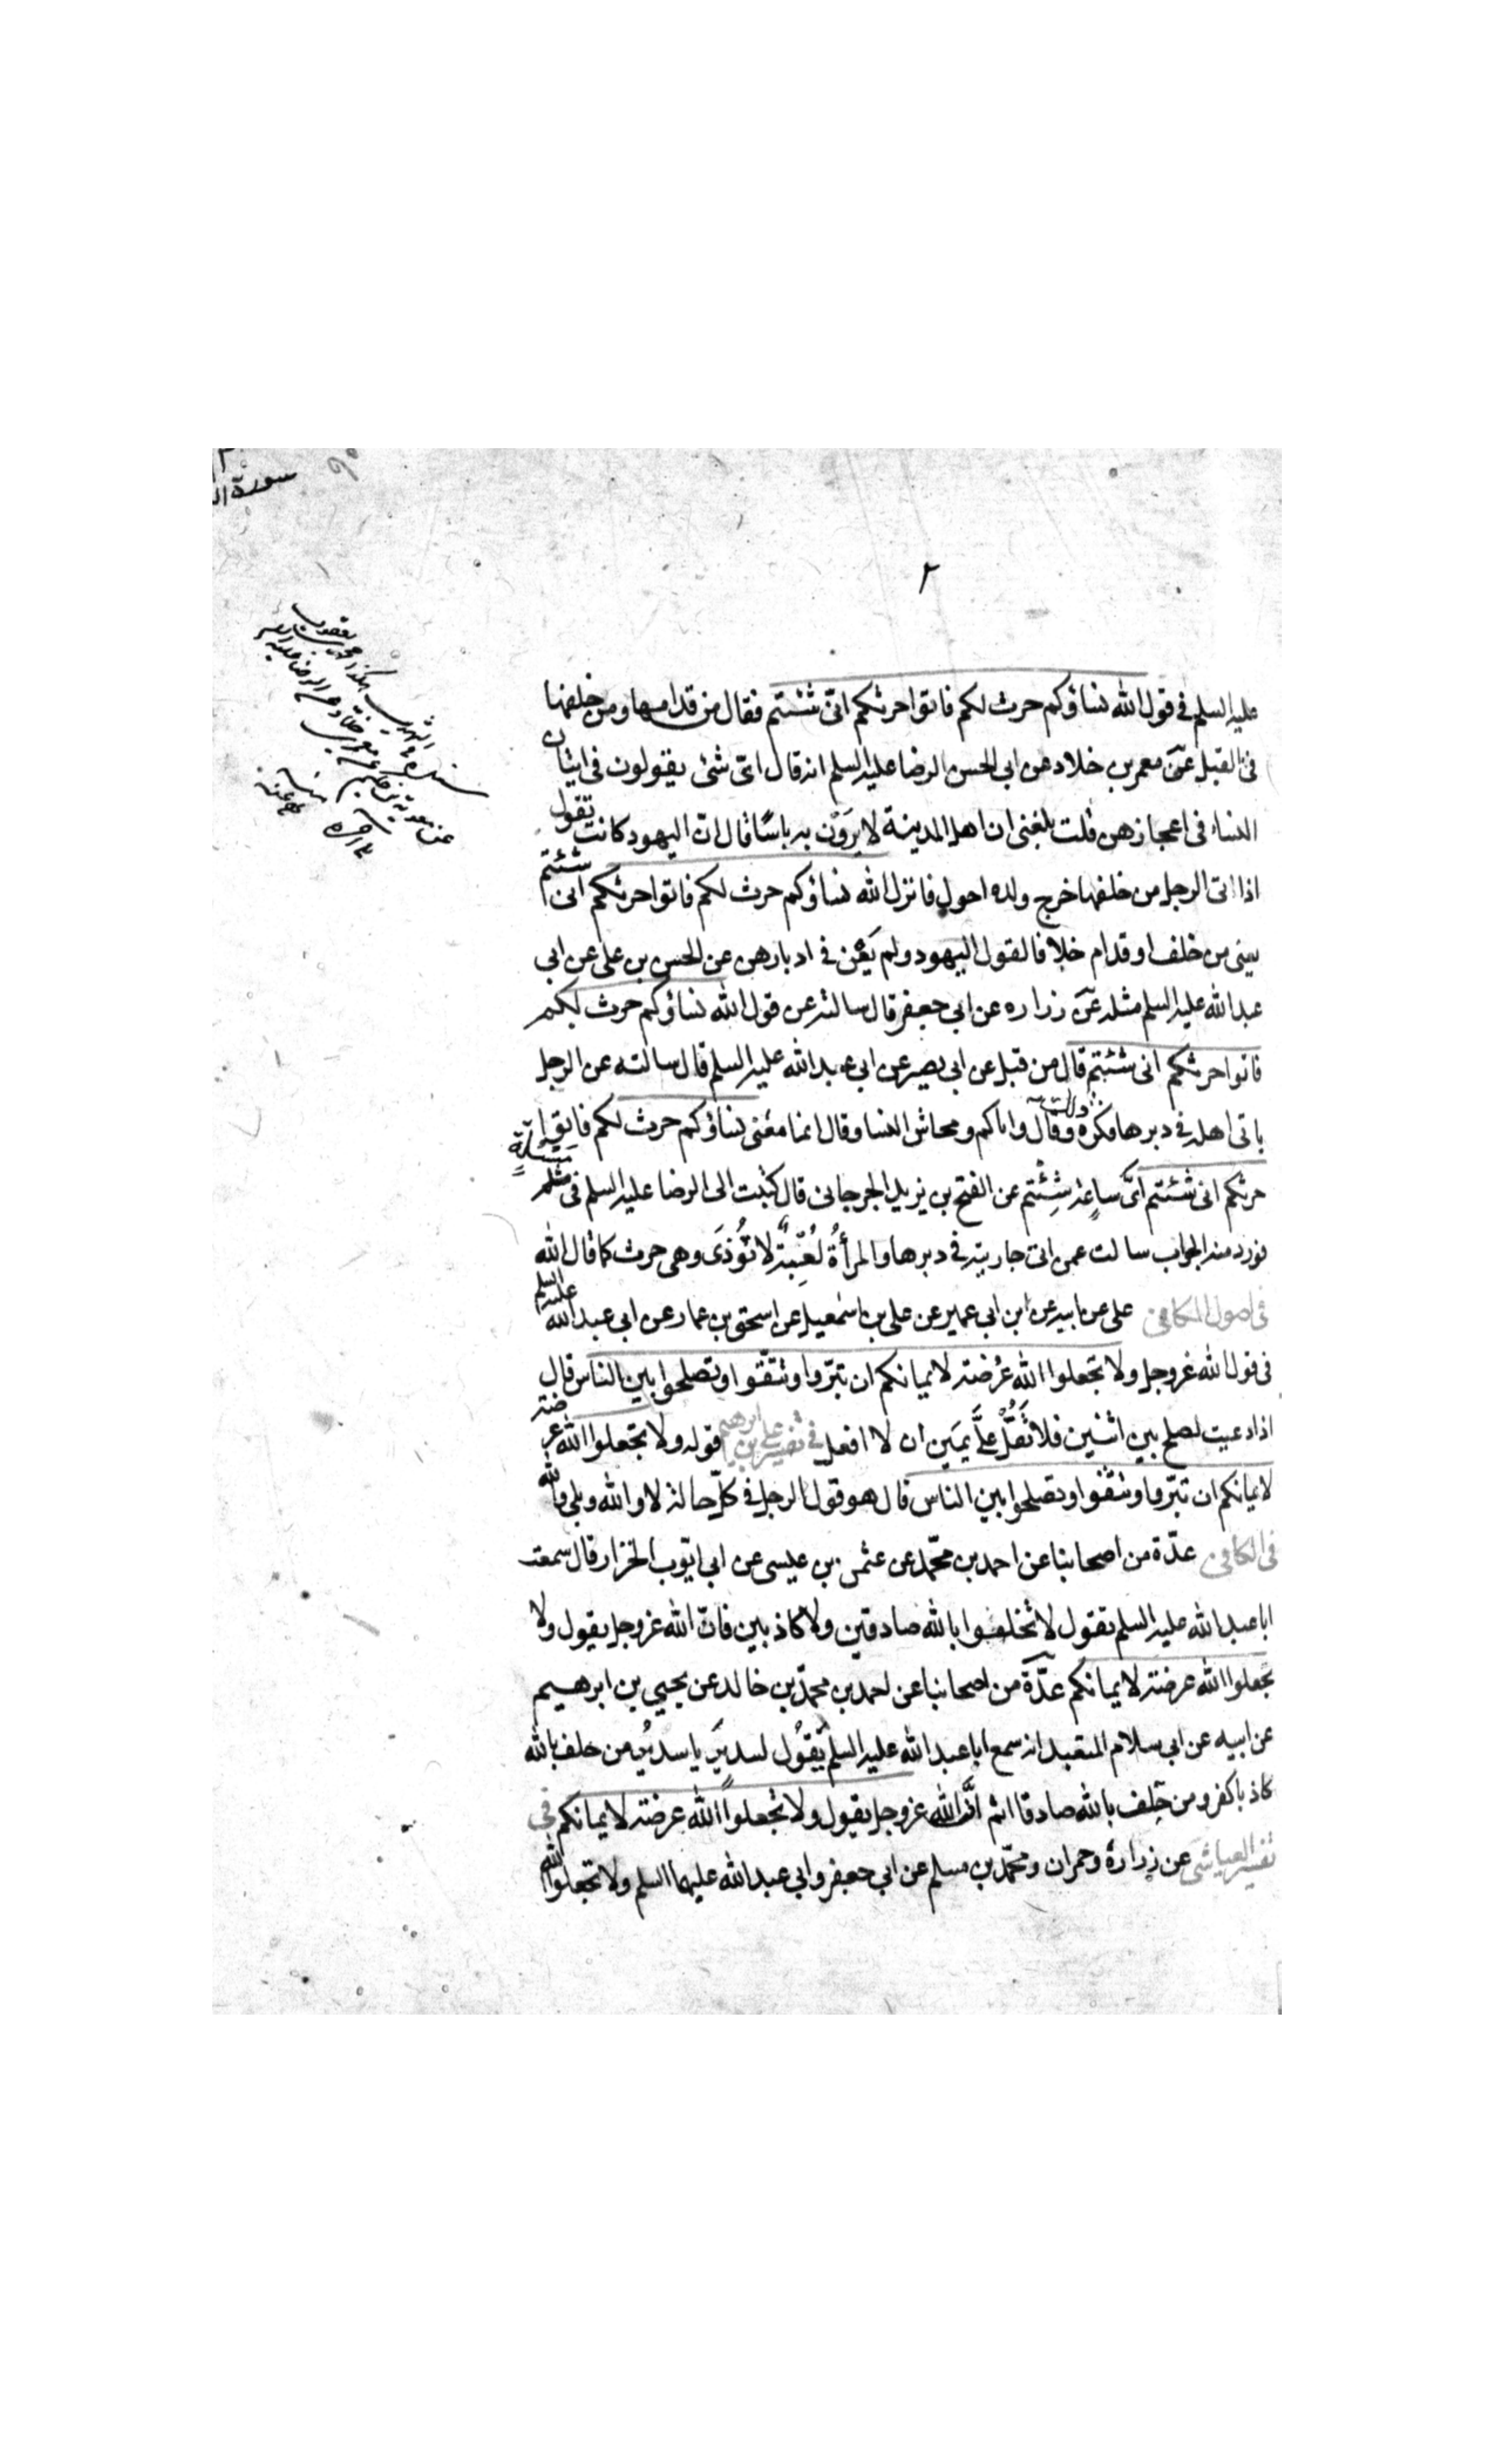 سورة
٢
عليه السلم فى قول الله نساؤكم حرث لكم فاتوا حرثكم انى شئتم فقال من قدامها ومن خلفها
فى القبل عن معمر بن خلاد عن ابى الحسن الرضا عليه السلم انه قال اى شئ يقولون فى اتيان
النساء فى اعجازهن قلت بلغنى ان اهل المدينة لا يَرَوْن به باسًا قال ان اليهود كانت تقول
اذا اتى الرجل من خلفها خرج ولده احول فانزل الله نساؤكم حرث لكم فاتوا حرثكم انى شئتم
يعنى من خلف او قدام خلافا لقول اليهود ولم يَعْن فى ادبارهن عن الحسن بن على عن ابى
عبد الله عليه السلم مثله عن زراره عن ابى جعفر قال سالته عن قول الله نساؤكم حرث لكم
فاتوا حرثكم انى شئتم قال من قبل عن ابى بصير عن ابى عبد الله عليه السلم قال سالته عن الرجل
ياتى اهله فى دبرها فكره ذلك وقال واياكم ومحاش النسا وقال انما معنى نساؤكم حرث لكم فاتوا
حرثكم انى شئتم اىَّ ساعة شِئْتم عن الفتح بن يزيد الجرجانى قال كتبت الى الرضا عليه السلم فى مثله
فورد منه الجواب سالت عمن اتى جاريته فى دبرها والمرأةُ لُعْبةٌ لا تُوذَى وهى حرث كما قال الله
فى اصول الكافى على عن ابيه عن ابن ابى عمير عن على بن اسمعيل عن اسحق بن عمار عن ابى عبد الله عليه السلم
فى قول الله عز وجل ولا تجعلوا الله عُرْضة لايمانكم ان تبرّوا وتتّقوا وتصلحوا بين الناس قال
اذا دعيت لصلح بين اثنين فلا تَقُلْ علَّى يَمين ان لا افعل فى تفسير على بن ابرهيم قوله ولا تجعلوا الله عرضة
لايمانكم ان تبرّوا وتتّقوا وتصلحوا بين الناس قال هو قول الرجل فى كلّ حالة لا والله وبلى والله
فى الكافى عدّة من اصحابنا عن احمد بن محمّد عن عثمن بن عيسى عن ابى ايّوب الخزاز قال سمعت
ابا عبد الله عليه السلم يقول لا تحلفوا بالله صادقين ولا كاذبين فانّ الله عز وجل يقول ولا
تجعلوا الله عرضة لايمانكم عدّة من اصحابنا عن احمد بن محمّد بن خالد عن يحيى بن ابرهيم
عن ابيه عن ابى سلام المتعبد انه سمع ابا عبد الله عليه السلم يَقُول لسدير يا سديرُ من حلف بالله
كاذبا كفر ومن حَلف بالله صادقا اثم انَّ الله عز وجل يقول ولا تجعلوا الله عرضة لايمانكم فى
تفسير العياشى عن زرارة وحمران ومحمّد بن مسلم عن ابى جعفر وابى عبد الله عليهما السلم ولا تجعلوا الله